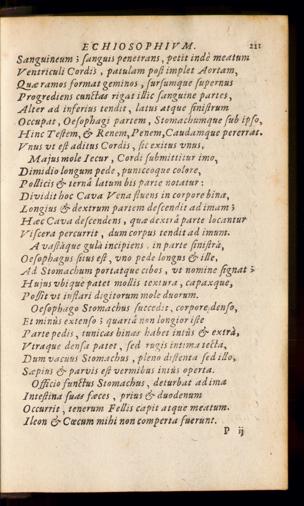 ECHIOSOPHIVM. 211
Sanguineum; sanguis penetrans, petit indè meatum
Ventriculi Cordis, patulam post implet Aortam,
Quæ ramos format geminos, sursumque supernus
Progrediens cunctas rigat illic sanguine partes,
Alter ad inferius tendit, latus atque sinistrum
Occupat, Oesophagi partem, Stomachumque sub ipso,
Hinc Testem, & Renem, Penem, Caudamque pererrat.
Vnus vt est aditus Cordis, sic exitus vnus,
Majus mole Iecur, Cordi submittitur imo,
Dimidio longum pede, puniceoque colore,
Pollicis & ternâ latum bis parte notatur:
Dividit hoc Cava Vena fluens in corpore binæ,
Longius & dextrum partem descendit ad imam;
Hæc Cava descendens, qua dextrâ parte locantur
Viscera percurrit, dum corpus tendit ad imum.
A vastâque gulâ incipiens, in parte sinistrâ,
Oesophagus situs est, vno pede longus & ille,
Ad Stomachum portatque cibos, vt nomine signat;
Hujus vbique patet mollis textura, capaxque,
Possit vt instari digitorum mole duorum.
Oesophago Stomachus succedit, corpore denso,
Et minùs extenso; quartâ non longior iste
Parte pedis, tunicas binas habet intùs & extrà,
Vtraque densa patet, sed rugis intima tecta,
Dum vacuus Stomachus, pleno distenta sed illo,
Sæpius & parvis est vermibus intùs operta.
Officio functus Stomachus, deturbat ad ima
Intestina suas fæces, prius & duodenum
Occurrit, tenerum Fellis capit atque meatum.
Ileon & Cœcum mihi non comperta fuerunt.
P ij